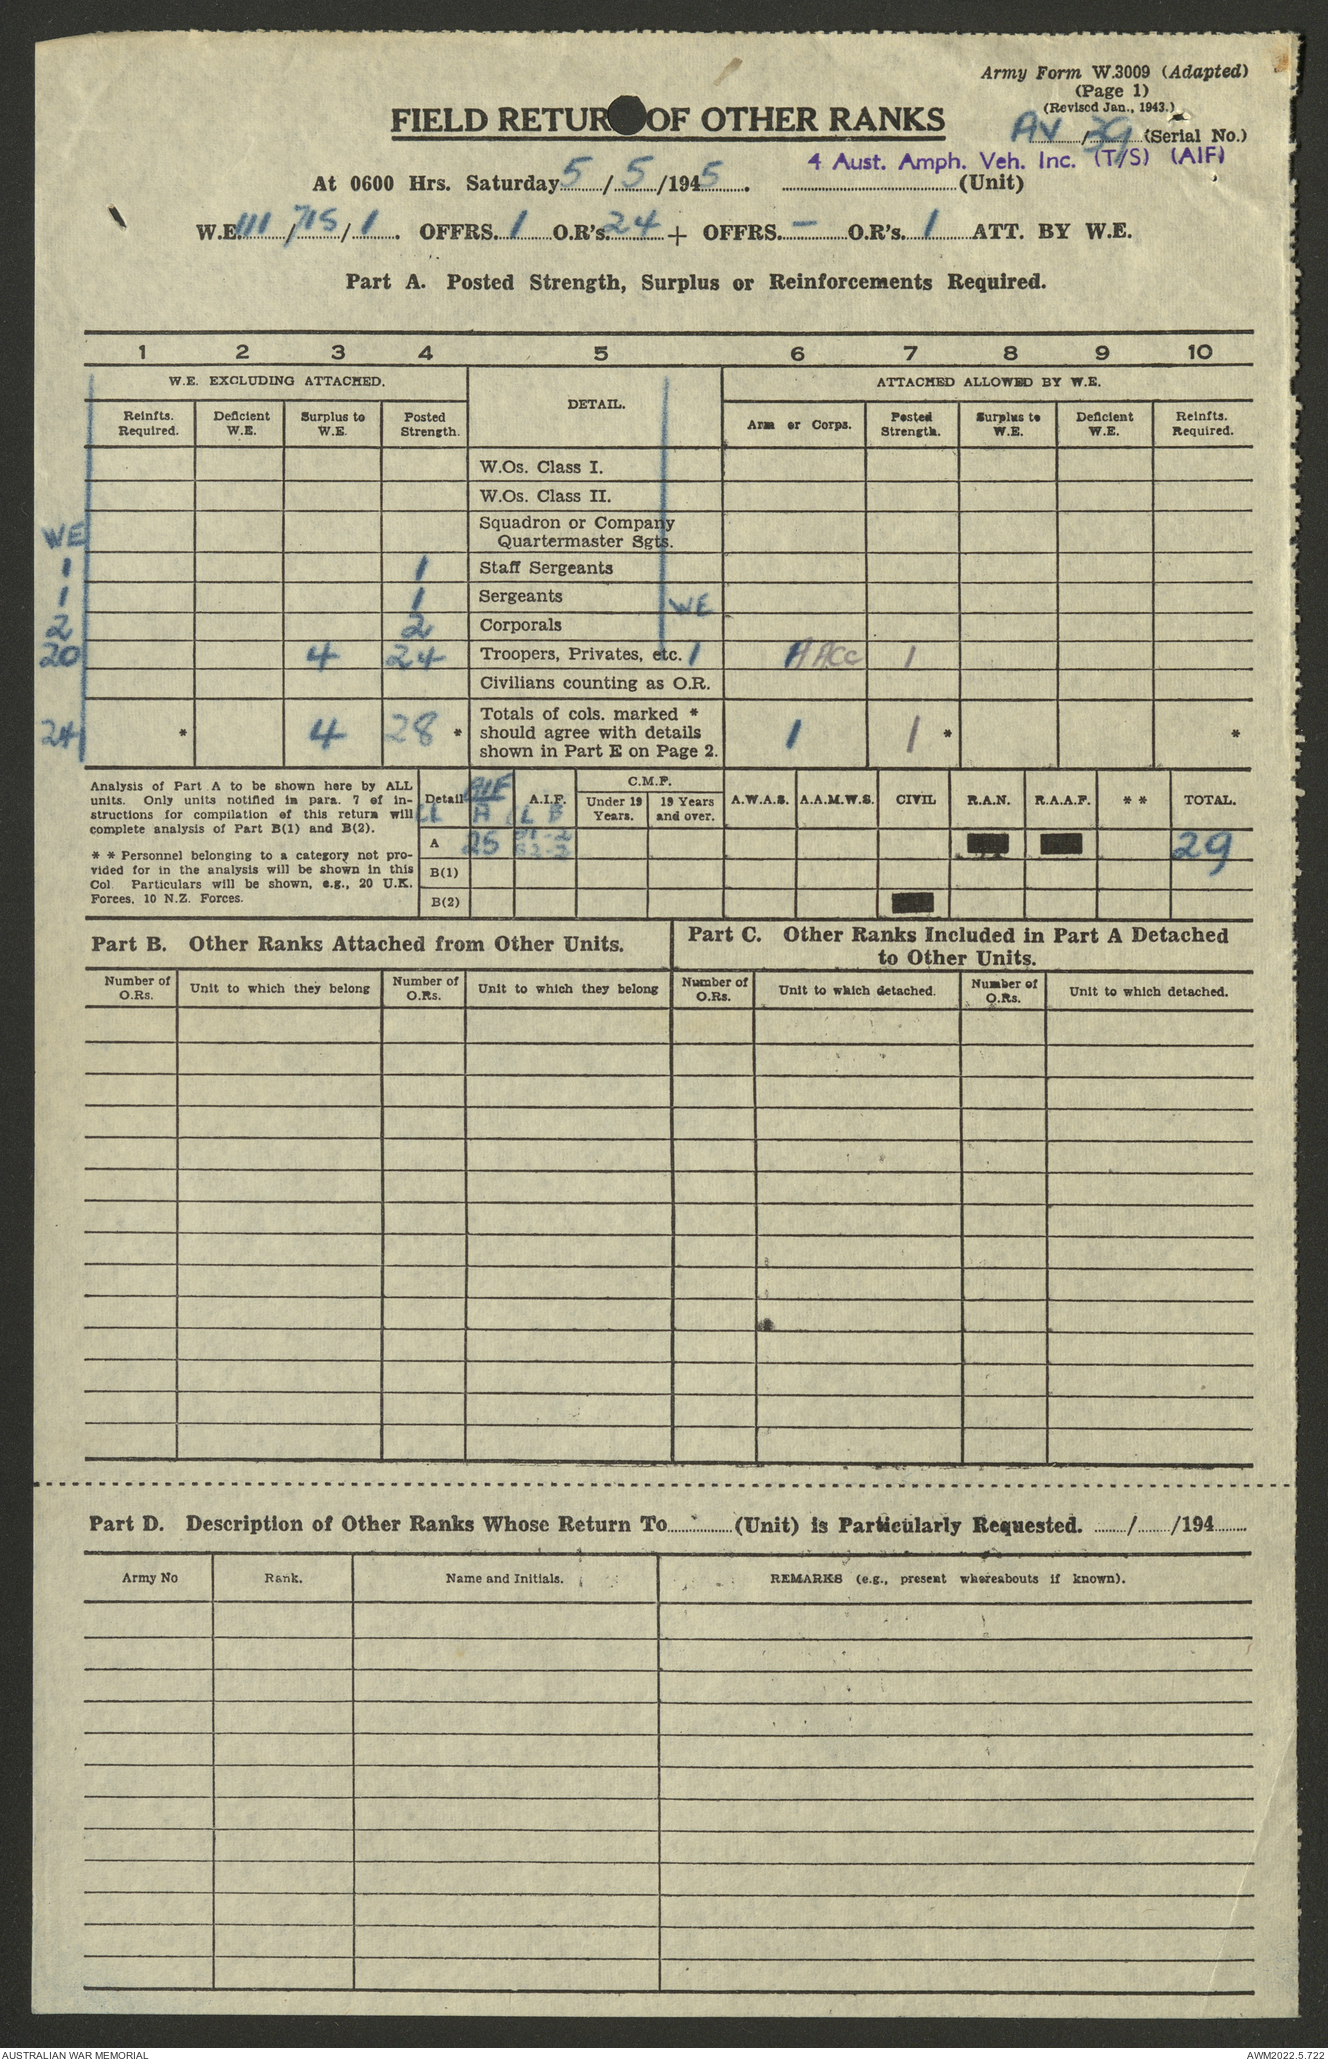 Army Form W.3009 (Adapted)
(Page 1)
(Revised Jan., 1943.)
FIELD RETUR OF OTHER RANKS
AV/39 (Serial No.)
4 Aust. Amph. Veh. Inc. (T/S) (AIF)
At 0600 Hrs. Saturday 5/5/1945. (Unit)
W.E. 111/715/1. OFFRS. 1 O.R's. 24 + OFFRS. — O.R's. 1 ATT. BY W.E.
Part A. Posted Strength, Surplus or Reinforcements Required.
1 2 3 4 5 6 7 8 9 10
W.E. EXCLUDING ATTACHED. DETAIL. ATTACHED ALLOWED BY W.E.
Reinfts. Required. Deficient W.E. Surplus to W.E. Posted Strength. Arm or Corps. Posted Strength. Surplus to W.E. Deficient W.E. Reinfts. Required.
W.Os. Class I.
W.Os. Class II.
WE Squadron or Company
Quartermaster Sgts.
1 1 Staff Sergeants
1 1 Sergeants WE
2 2 Corporals
20 4 24 Troopers, Privates, etc. 1 AACC 1
Civilians counting as O.R.
24 * 4 28 * Totals of cols. marked * should agree with details shown in Part E on Page 2. 1 1 * *
Analysis of Part A to be shown here by ALL
units. Only units notified in para. 7 of in-
structions for compilation of this return will
complete analysis of Part B(1) and B(2).
* * Personnel belonging to a category not pro-
vided for in the analysis will be shown in this
Col. Particulars will be shown, e.g., 20 U.K.
Forces, 10 N.Z. Forces.
Detail AIF A A.I.F. B C.M.F. Under 19 Years. 19 Years and over. A.W.A.S. A.A.M.W.S. CIVIL R.A.N. R.A.A.F. * * TOTAL.
A 25 B1-2 B2-2 29
B(1)
B(2)
Part B. Other Ranks Attached from Other Units.
Part C. Other Ranks Included in Part A Detached
to Other Units.
Number of O.Rs. Unit to which they belong Number of O.Rs. Unit to which they belong Number of O.Rs. Unit to which detached. Number of O.Rs. Unit to which detached.
Part D. Description of Other Ranks Whose Return To (Unit) is Particularly Requested. / /194
Army No Rank. Name and Initials. REMARKS (e.g., present whereabouts if known).
AUSTRALIAN WAR MEMORIAL AWM2022.5.722